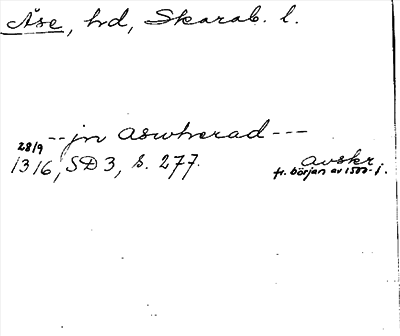 Åse, hd, Skarab. l.
--- jn aswherad ---
28/9
1316, SD 3, s. 277. avskr.
fr. början av 1500-t.